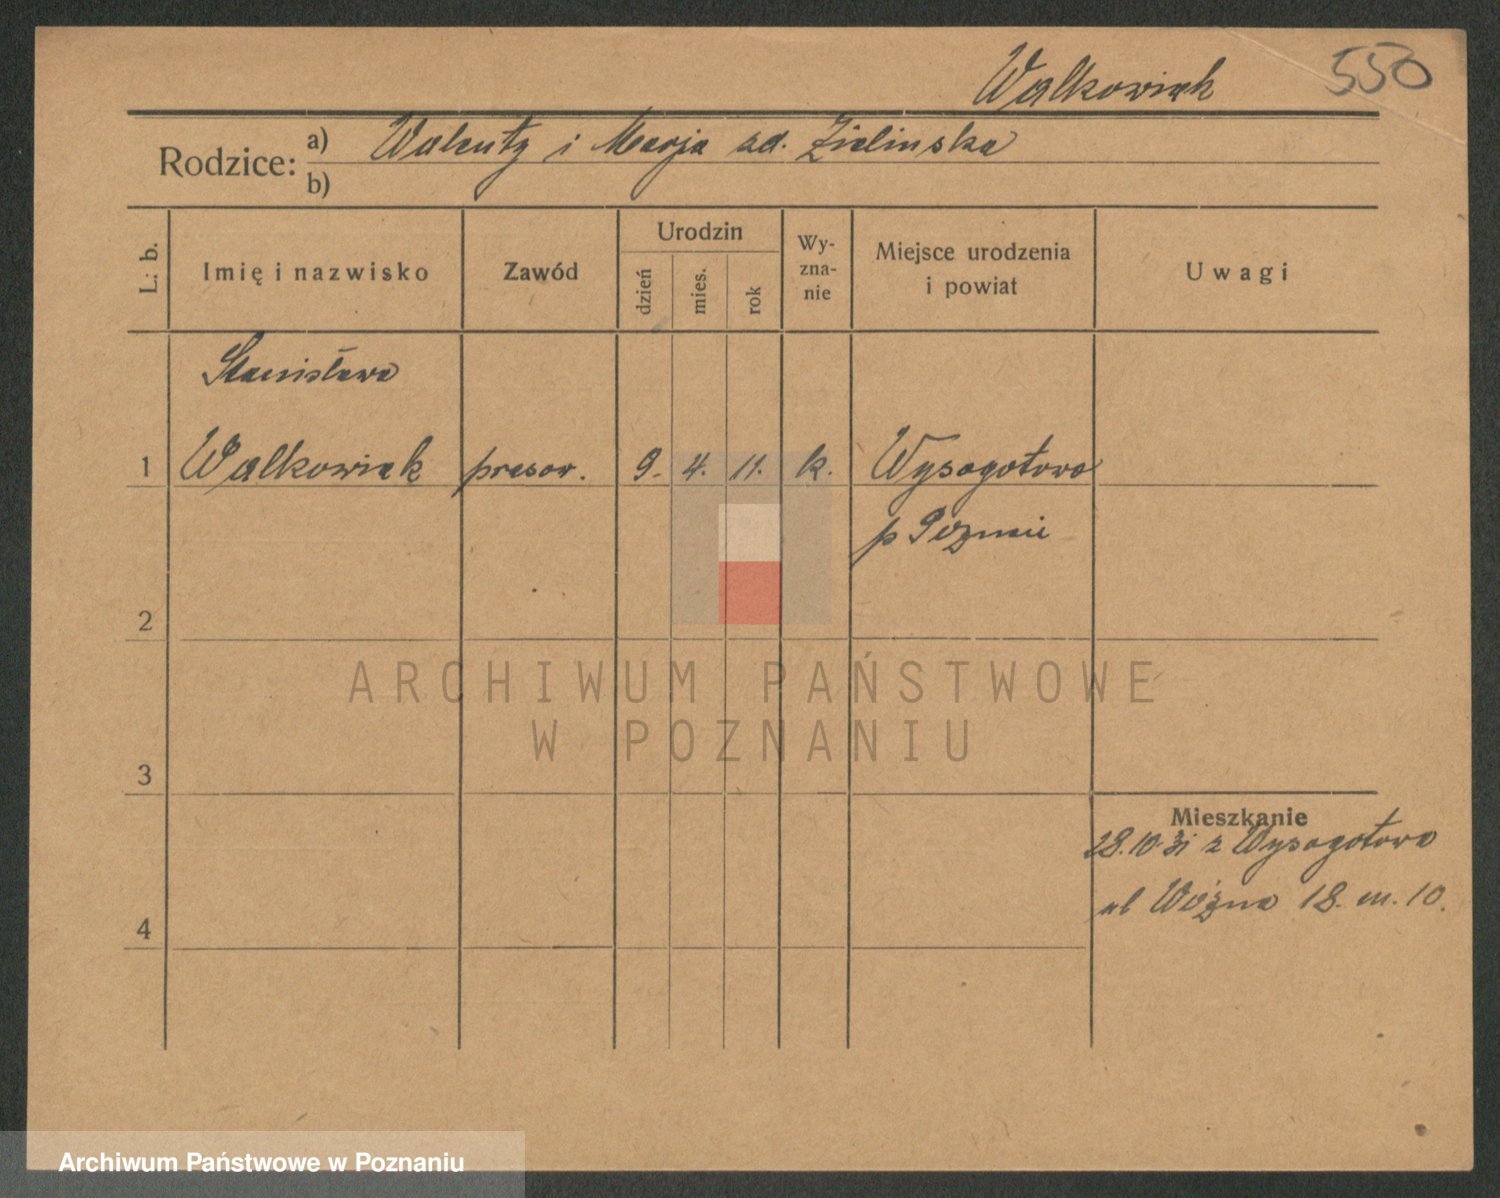 Walkowiak 550
Rodzice: a) Walenty i Marja zd. Zielinska
b)
L. b. Imię i nazwisko Zawód Urodzin dzień mies. rok Wy-zna-nie Miejsce urodzenia i powiat Uwagi
Stanisława
1 Walkowiak prasow. 9. 4. 11. k. Wysogotowo
p Poznań
2
ARCHIWUM PAŃSTWOWE
W POZNANIU
3
Mieszkanie
28.10.31 z Wysogotowo
4 ul Woźna 18. m. 10.
Archiwum Państwowe w Poznaniu